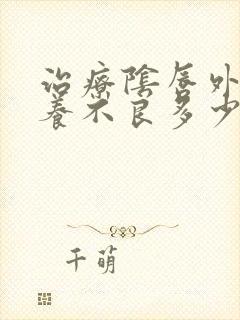 治療陰唇外
養不良多少
千萌